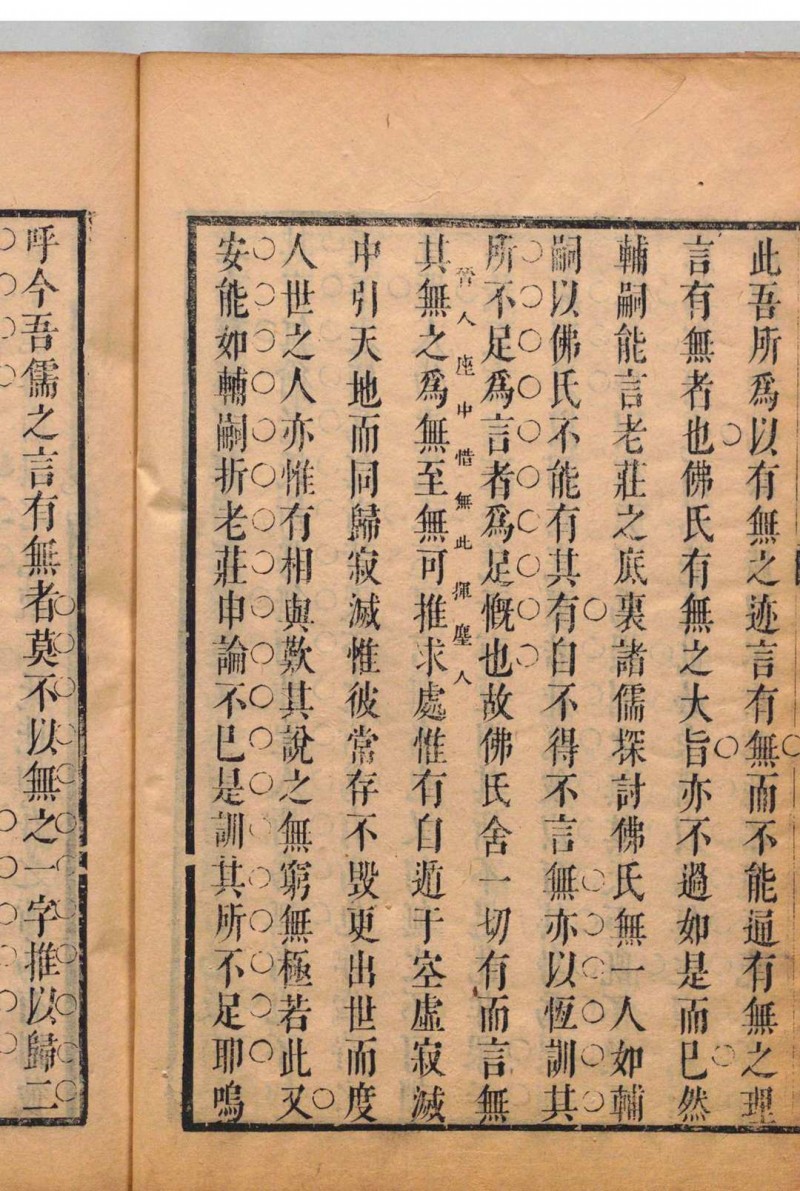 此吾所爲以有無之迹言有無而不能通有無之理
言有無者也佛氏有無之大旨亦不過如是而已然
輔嗣能言老莊之底裏諸儒探討佛氏無一人如輔
嗣以佛氏不能有其有自不得不言無亦以恆訓其
所不足爲言者爲足慨也故佛氏舍一切有而言無
晉人座中惜無此揮麈人
其無之爲無至無可推求處惟有自遁于空虛寂滅
中引天地而同歸寂滅惟彼常存不毀更出世而度
人世之人亦惟有相與歎其說之無窮無極若此又
安能如輔嗣折老莊申論不已是訓其所不足耶嗚
呼今吾儒之言有無者莫不以無之一字推以歸二